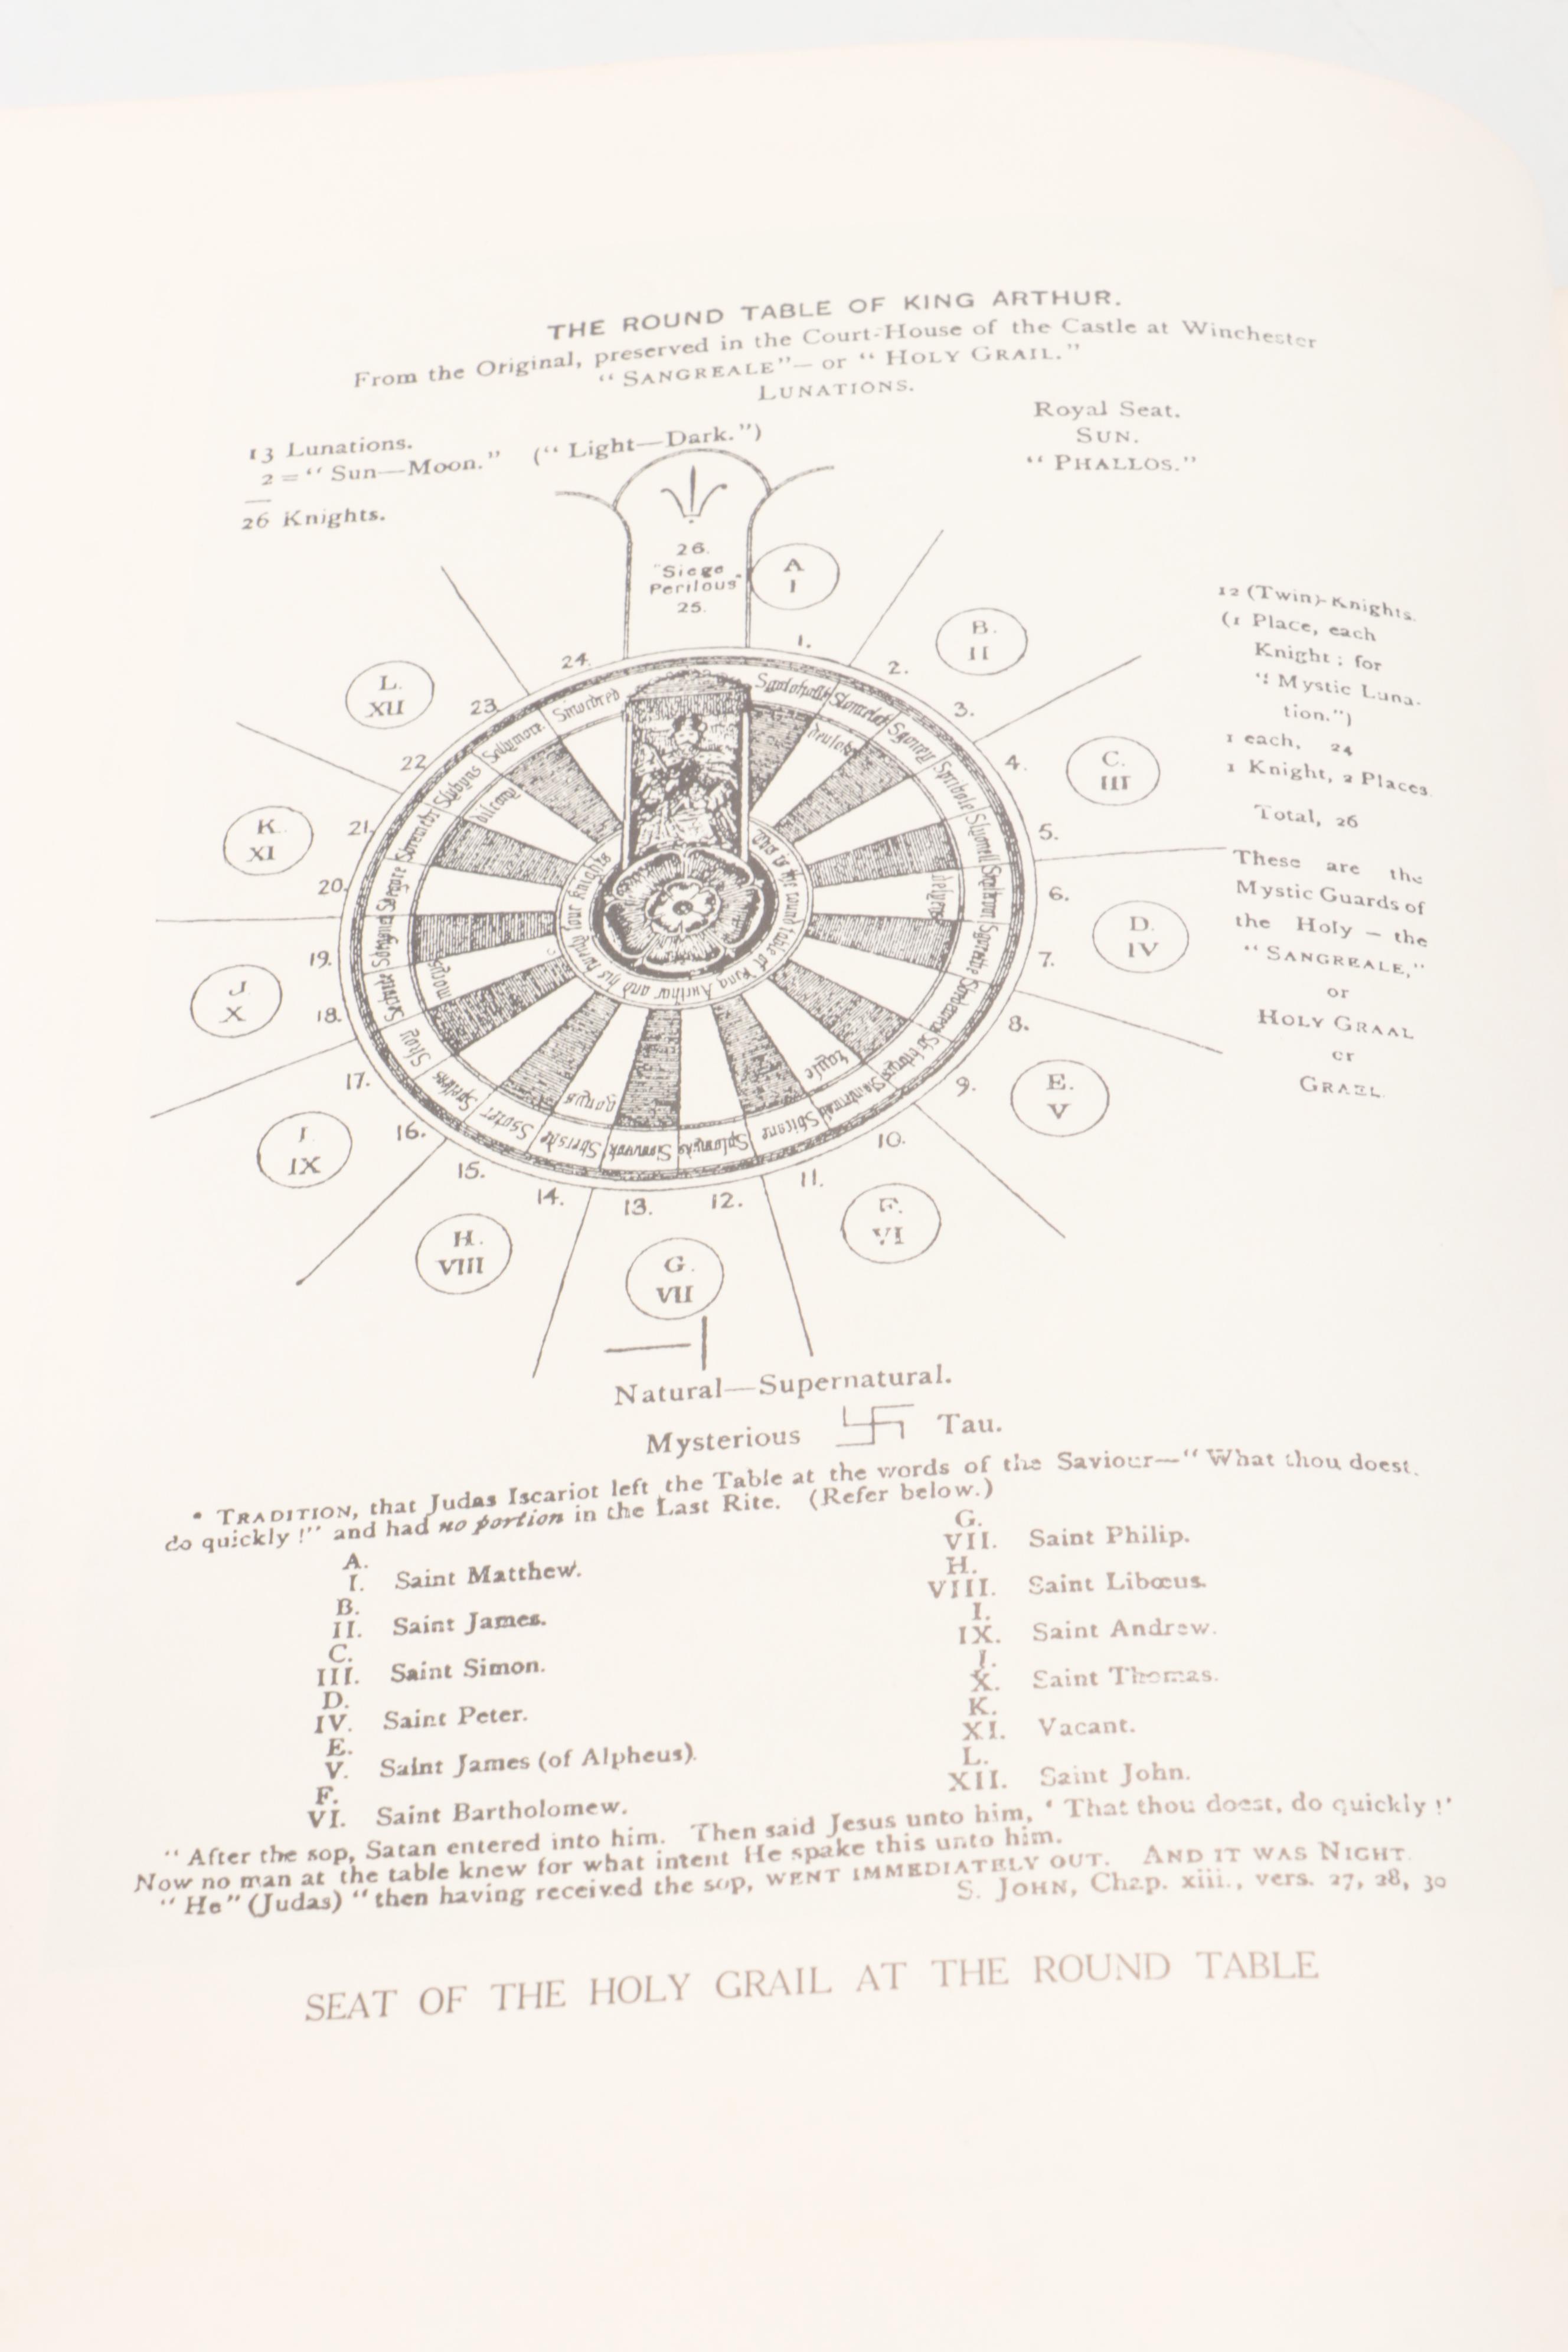 THE ROUND TABLE OF KING ARTHUR.
From the Original, preserved in the Court-House of the Castle at Winchester
"SANGREALE"— or "HOLY GRAIL."
LUNATIONS.
13 Lunations.
2 = "Sun—Moon." ("Light—Dark.")
26 Knights.
Royal Seat.
SUN.
"PHALLOS."
26.
"Siege
Perilous"
25.
A
I
B.
II
C.
III
D.
IV
E.
V
F.
VI
G.
VII
H.
VIII
I.
IX
J
X
K.
XI
L.
XII
1.
2.
3.
4.
5.
6.
7.
8.
9.
10.
11.
12.
13.
14.
15.
16.
17.
18.
19.
20.
21.
22.
23.
24.
This is the round table of King Arthur and his twenty four Knights
12 (Twin)-Knights.
(1 Place, each
Knight; for
"Mystic Luna-
tion.")
1 each, 24
1 Knight, 2 Places
Total, 26
These are the
Mystic Guards of
the Holy — the
"SANGREALE,"
or
HOLY GRAAL
or
GRAEL.
Natural—Supernatural.
Mysterious 卐 Tau.
* TRADITION, that Judas Iscariot left the Table at the words of the Saviour—"What thou doest,
do quickly!" and had no portion in the Last Rite. (Refer below.)
A.
I. Saint Matthew.
B.
II. Saint James.
C.
III. Saint Simon.
D.
IV. Saint Peter.
E.
V. Saint James (of Alpheus).
F.
VI. Saint Bartholomew.
G.
VII. Saint Philip.
H.
VIII. Saint Libœus.
I.
IX. Saint Andrew.
J.
X. Saint Thomas.
K.
XI. Vacant.
L.
XII. Saint John.
"After the sop, Satan entered into him. Then said Jesus unto him, 'That thou doest, do quickly!'
Now no man at the table knew for what intent He spake this unto him.
"He" (Judas) "then having received the sop, WENT IMMEDIATELY OUT. AND IT WAS NIGHT.
S. JOHN, Chap. xiii., vers. 27, 28, 30
SEAT OF THE HOLY GRAIL AT THE ROUND TABLE